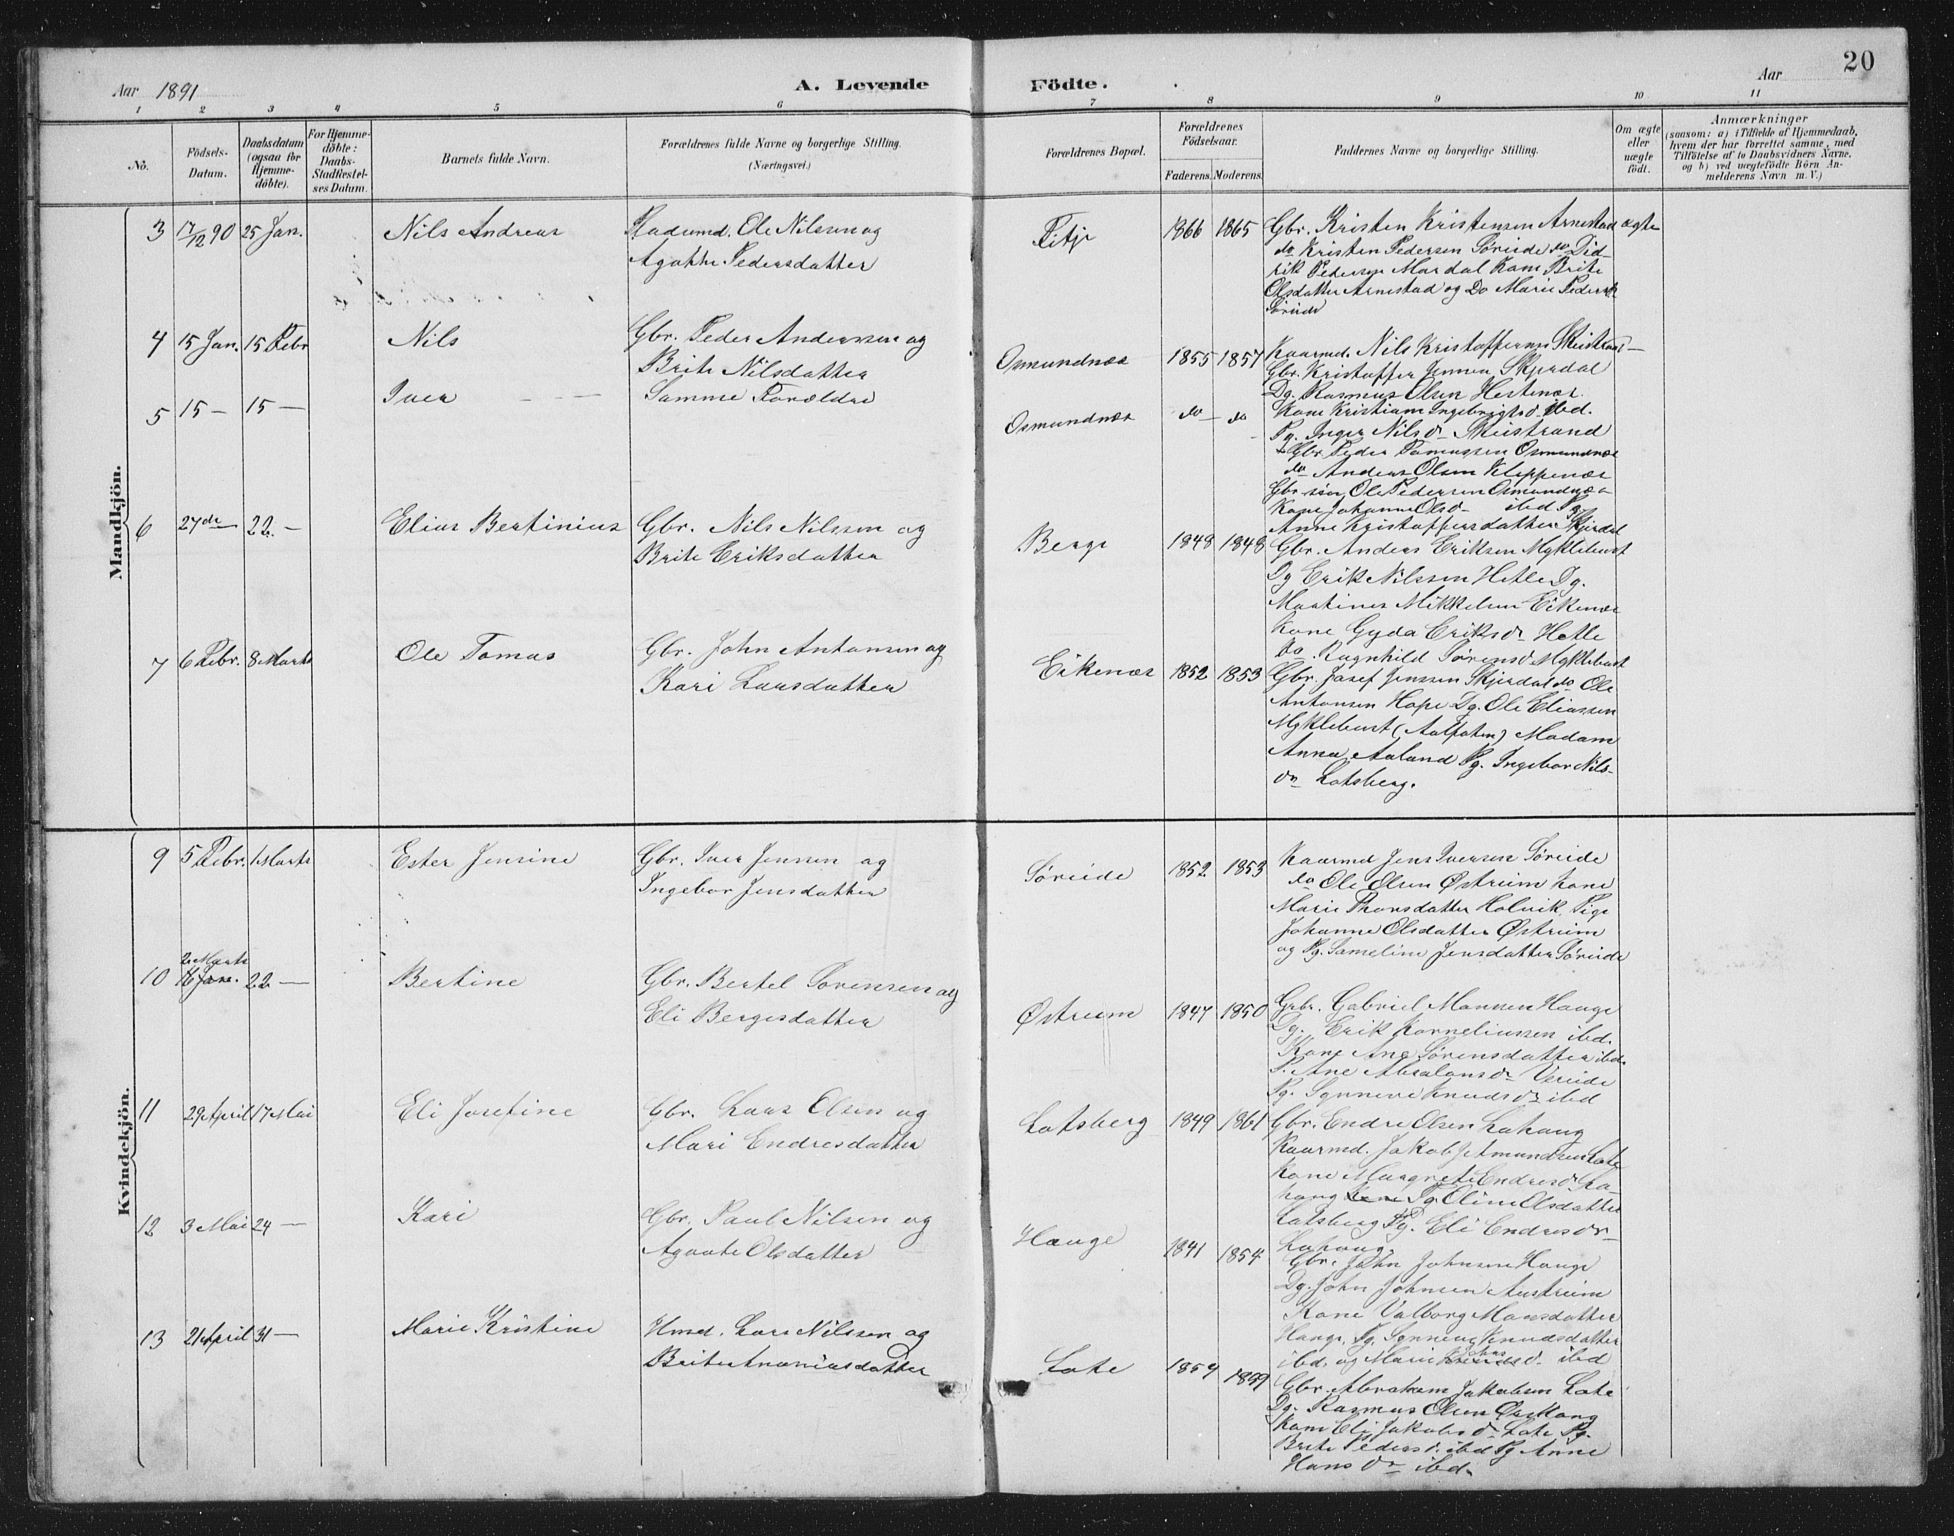 20
Aar 1891
A. Levende Födte.
Aar
1 2 3 4 5 6 7 8 9 10 11
No.
Födsels-Datum.
Daabsdatum (ogsaa for Hjemme-döbte).
For Hjemme-döbte: Daabs-Stadfæstel-ses Datum.
Barnets fulde Navn.
Forældrenes fulde Navne og borgerlige Stilling.
(Næringsvei.)
Forældrenes Bopæl.
Forældrenes Födselsaar.
Faderens. Moderens.
Faddernes Navne og borgerlige Stilling.
Om ægte eller uægte födt.
Anmærkninger
(saasom: a) i Tilfælde af Hjemmedaab,
hvem der har forrettet samme, med
Tilföielse af to Daabsvidners Navne,
og b) ved uegtefödte Börn An-
melderens Navn m. V.)
Mandkjön.
3 17/12 90 25 Jan. Nils Andreas
Ole Nilssen og
Agathe Pedersdatter
Fitje 1866 1865
Gbr. Kristen Kristensen Arnestad ægte
do Kristen Pedersen Søreide do Did-
rik Pedersen Mardal Kone Brite
Olsdatter Arnestad og Do Marie Peders
Søreide
4 15 Jan. 15 Febr Nils
Gbr. Peder Andersen og
Brite Nilsdatter
Osmundnæs 1855 1857
Kaarmd. Nils Kristoffersen
Gbr. Kristoffer Jensen Skjerdal
Dg. Rasmus Olsen Hestenæs
5 15 — 15 — Iver — — —
Samme Forældre
Osmundnæs do — do
Kone Kristiane Ingebrigtsd ibd.
Pg. Inger Nilsd
Gbr. Peder Osmundnæs
do Anders Olsen Kleppenæs
Gbr søn Ole Pedersen Osmundnæs
Kone Johanne Olsd ibd Pg
Anne Kristoffersdatter Skjerdal
6 27de 22 — Elias Bertinius
Gbr. Nils Nilssen og
Brite Eriksdatter
Berge 1848 1848
Gbr. Anders Eriksen Myklebust
Dg Erik Nilssen Hetle Dg.
Martines Mikkelsen Eikenæs
Kone Gyda Eriksdr Hetle
do. Ragnhild Sørensd Myklebust
7 6 Febr. 8 Marts Ole Tomas
Gbr. John Antonsen og
Kari Larsdatter
Eikenæs 1852 1853
Gbr. Josef Jenssen Skjerdal do Ole
Antonsen Hope Dg. Ole Eliassen
Myklebust (Aalfoten) Madam
Anna Aaland Pg. Ingebor Nils-
dr Lotsberg.
Kvindekjön.
9 5 Febr. 1 Marts Ester Jensine
Gbr. Iver Jensen og
Ingebor Jensdatter
Søreide 1852 1853
Kaarmd Jens Iversen Søreide
do Ole Olsen Østreim Kone
Marie Thorsdatter Holvik Pige
Johanne Olsdatter Østreim
og Pg. Sameline Jensdatter Søreide
10 2 Marts 16 Jan. 22 — Bertine
Gbr. Bertel Sørensen og
Eli Bergesdatter
Østreim 1847 1850
Gbr. Gabriel Monsen Hauge
Dg. Erik Korneliussen ibd.
Kone Ane Sørensdatter ibd.
P. Ane Absalonsdr Vereide
Pg. Synneve Knudsdr ibd
11 29 April 17 Mai Eli Josefine
Gbr. Lars Olsen og
Mari Endresdatter
Lotsberg 1849 1861
Gbr. Endre Olsen Lahaug
Kaarmd. Jakob J Amundsen Lote
Kone Margrete Endresd La-
haug Kone Pg. Oline Olsdatter
Lotsberg Pg. Eli Endresdr
Lahaug.
12 3 Mai 24 — Kari
Gbr. Paul Nilsen og
Agaate Olsdatter
Hauge 1841 1854
Gbr. John Johnsen Hauge
Dg. John Johnsen Austreim
Kone Valborg Monsdatter
Hauge, Pg. Synneve Knudsdatter
ibd. og Marie ibd
13 21 April 31 — Marie Kristine
Hmd. Lars Nilssen og
Brite Ananiasdatter
Lote 1854 1859
Gbr. Abraham Jakobsen Lote
Dg. Rasmus Olsen Ørshaug
Kone Eli Jakobsd Lote Pg.
Brite Pedersd. ibd Pg Anne
Hansdr ibd.